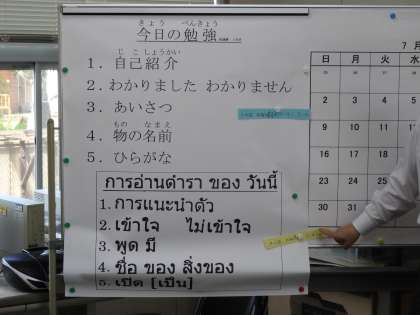 きょう べんきょう
今日の勉強
じこしょうかい
1. 自己紹介
2. わかりました わかりません
3. あいさつ
もの なまえ
4. 物の名前
5. ひらがな
การอ่านตำรา ของ วันนี้
1. การแนะนำตัว
2. เข้าใจ ไม่เข้าใจ
3. พูด มี
4. ชื่อ ของ สิ่งของ
5. เปิด [เป็น]
7月
日 月 火 水
2 3 4
9 10 11
16 17 18
23 24 25
30 31